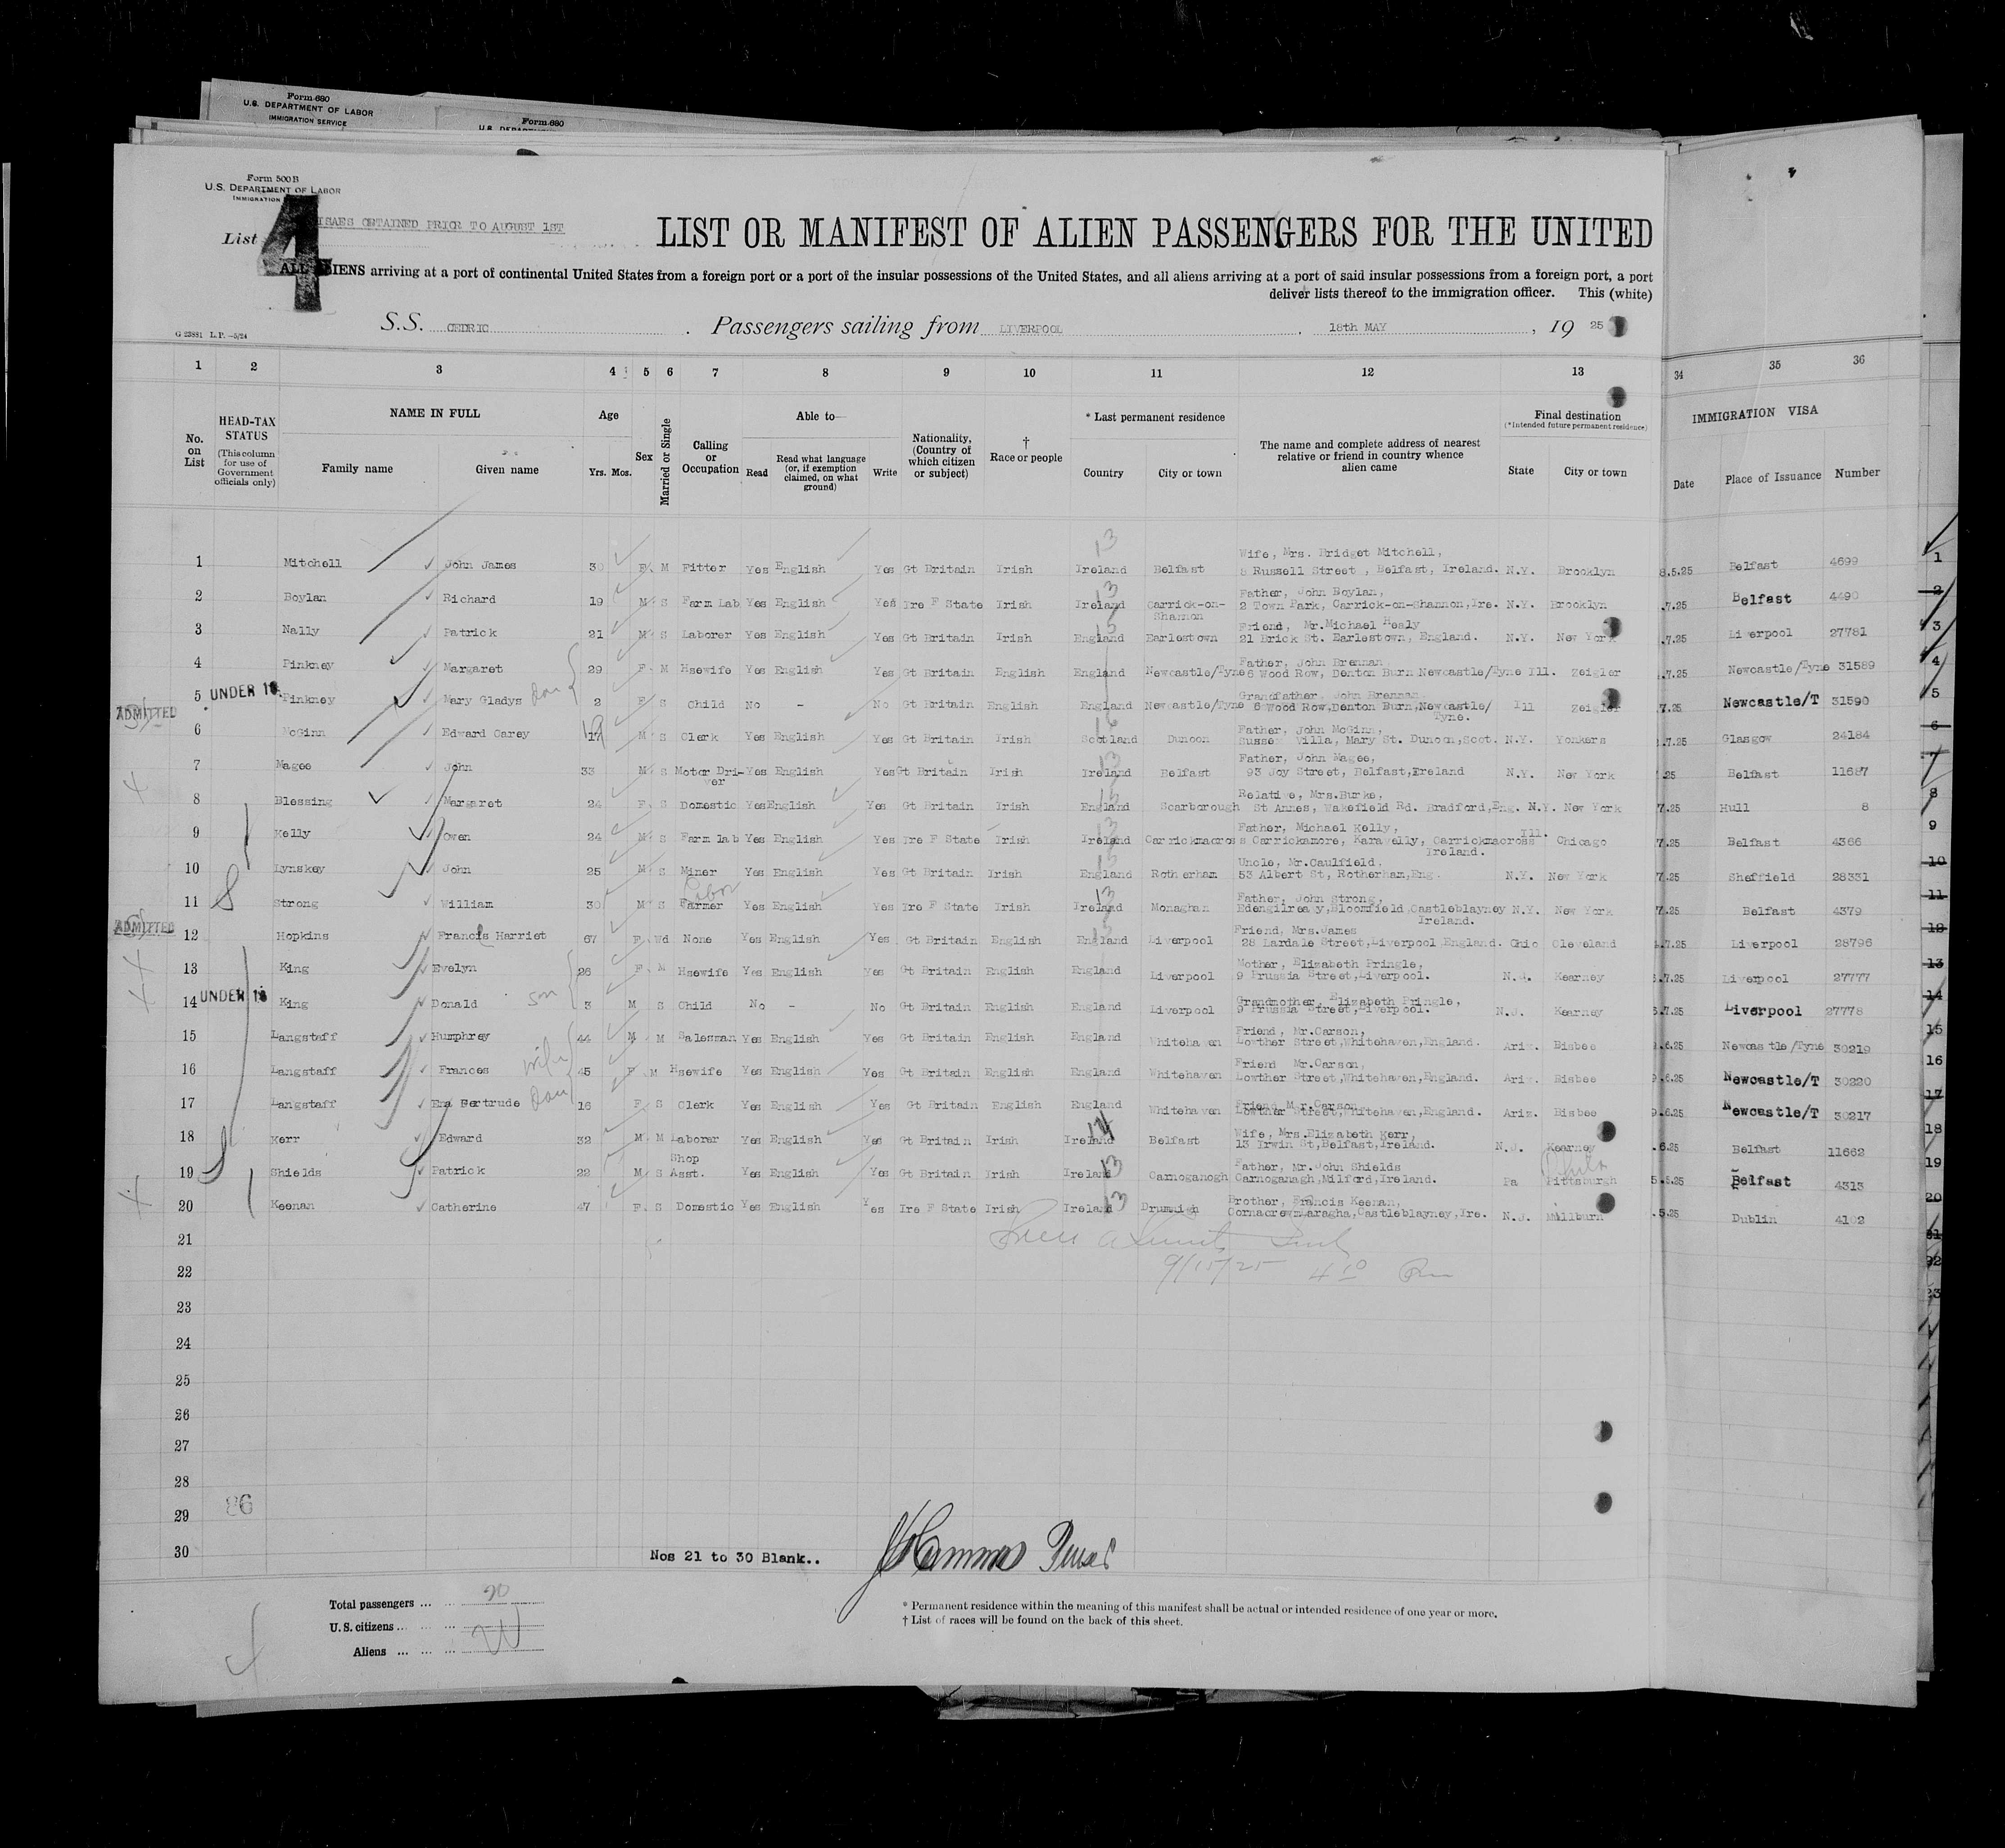 Form 680
U.S. DEPARTMENT OF LABOR
IMMIGRATION SERVICE
Form 680
Form 500 B
U.S. DEPARTMENT OF LABOR
IMMIGRATION
4
ISAES OBTAINED PRIOR TO AUGUST 1ST
List
LIST OR MANIFEST OF ALIEN PASSENGERS FOR THE UNITED
ALL ALIENS arriving at a port of continental United States from a foreign port or a port of the insular possessions of the United States, and all aliens arriving at a port of said insular possessions from a foreign port, a port
deliver lists thereof to the immigration officer. This (white)
G 23881 L.P.—5/24
S.S. CEDRIC . Passengers sailing from LIVERPOOL , 18th MAY , 19 25
1 2 3 4 5 6 7 8 9 10 11 12 13 34 35 36
No. on List
HEAD-TAX STATUS (This column for use of Government officials only)
NAME IN FULL
Family name Given name
Age
Yrs. Mos.
Sex
Married or Single
Calling or Occupation
Able to—
Read Read what language (or, if exemption claimed, on what ground) Write
Nationality, (Country of which citizen or subject)
† Race or people
* Last permanent residence
Country City or town
The name and complete address of nearest relative or friend in country whence alien came
Final destination
(*Intended future permanent residence)
State City or town
IMMIGRATION VISA
Date Place of Issuance Number
Wife, Mrs. Bridget Mitchell,
1 Mitchell John James 30 M Fitter Yes English Yes Gt Britain Irish 13 Ireland Belfast 8 Russell Street , Belfast, Ireland. N.Y. Brooklyn 8.5.25 Belfast 4699 1
Father, John Boylan,
2 Boylan Richard 19 M S Farm Lab Yes English Yes Ire F State Irish 13 Ireland Carrick-on-Shannon 2 Town Park, Carrick-on-Shannon,Ire. N.Y. Brooklyn .7.25 Belfast 4490 2
Friend, Mr.Michael Healy
3 Nally Patrick 21 M S Laborer Yes English Yes Gt Britain Irish England Earlestown 21 Brick St. Earlestown, England. N.Y. New York .7.25 Liverpool 27781 3
Father, John Brennan,
4 Pinkney Margaret 29 F M Hsewife Yes English Yes Gt Britain English England Newcastle/Tyne 6 Wood Row, Denton Burn Newcastle/Tyne Ill. Zeigler .7.25 Newcastle/Tyne 31589 4
Grandfather, John Brennan
ADMITTED 5 UNDER 16 Pinkney Mary Gladys Dau 2 F S Child No - No Gt Britain English England Newcastle/Tyne 6 Wood Row,Denton Burn,Newcastle/Tyne. Ill Zeigler 7.25 Newcastle/T 31590 5
Father, John McGinn,
6 McGinn Edward Carey 19 17 M S Clerk Yes English Yes Gt Britain Irish Scotland Dunoon Susse Villa, Mary St. Dunoon,Scot. N.Y. Yonkers .7.25 Glasgow 24184 6
Father, John Magee,
7 Magee John 33 M S Motor Dri-ver Yes English Yes Gt Britain Irish 13 Ireland Belfast 93 Joy Street, Belfast,Ireland N.Y. New York .25 Belfast 11687 7
Relative, Mrs.Burke,
8 Blessing Margaret 24 F S Domestic Yes English Yes Gt Britain Irish England Scarborough St Annes, Wakefield Rd. Bradford,Eng. N.Y. New York 7.25 Hull 8 8
Father, Michael Kelly,
9 Kelly Owen 24 M S Farm lab Yes English Yes Ire F State Irish 13 Ireland Carrickmacross Carrickamore, Karavelly, Carrickmacross Ireland. Ill. Chicago 7.25 Belfast 4366 9
Uncle, Mr.Caulfield,
10 Lynskey John 25 M S Miner Yes English Yes Gt Britain Irish England Rotherham 53 Albert St, Rotherham,Eng. N.Y. New York 7.25 Sheffield 28331 10
Father, John Strong,
11 Strong William 30 M S Farmer Labor Yes English Yes Ire F State Irish 13 Ireland Monaghan Edengilreavy,Bloomfield,Castleblayney Ireland. N.Y. New York 7.25 Belfast 4379 11
Friend, Mrs.James
ADMITTED 12 Hopkins Francis Harriet 67 F Wd None Yes English Yes Gt Britain English England Liverpool 28 Lardale Street,Liverpool,England. Ohio Cleveland .7.25 Liverpool 28796 12
Mother, Elizabeth Pringle,
13 King Evelyn 26 F M Hsewife Yes English Yes Gt Britain English England Liverpool 9 Prussia Street,Liverpool. N.J. Kearney .7.25 Liverpool 27777 13
Grandmother, Elizabeth Pringle,
14 UNDER 16 King Donald son 3 M S Child No - No Gt Britain English England Liverpool 9 Prussia Street,Liverpool. N.J. Kearney .7.25 Liverpool 27778 14
Friend, Mr.Carson,
15 Langstaff Humphrey 44 M M Salesman Yes English Yes Gt Britain English England Whitehaven Lowther Street,Whitehaven,England. Ariz. Bisbee .6.25 Newcastle/Tyne 30219 15
Friend Mr.Carson,
16 Langstaff Frances wife 45 F M Hsewife Yes English Yes Gt Britain English England Whitehaven Lowther Street,Whitehaven,England. Ariz. Bisbee 9.6.25 Newcastle/T 30220 16
Friend Mr.Carson,
17 Langstaff Ena Gertrude Dau 16 F S Clerk Yes English Yes Gt Britain English England Whitehaven Lowther Street,Whitehaven,England. Ariz. Bisbee 9.6.25 Newcastle/T 30217 17
Wife, Mrs.Elizabeth Kerr,
18 Kerr Edward 32 M M Laborer Yes English Yes Gt Britain Irish Ireland Belfast 13 Irwin St,Belfast,Ireland. N.J. Kearney .6.25 Belfast 11662 18
Father, Mr.John Shields
19 Shields Patrick 22 M S Shop Asst. Yes English Yes Gt Britain Irish 13 Ireland Carnoganogh Carnoganagh,Milford,Ireland. Pa Pittsburgh 5.5.25 Belfast 4313 19
Brother, Francis Keenan,
20 Keenan Catherine 47 F S Domestic Yes English Yes Ire F State Irish 13 Ireland Drumish Cornacrew,Laragha,Castleblayney,Ire. N.J. Millburn .5.25 Dublin 4102 20
21 21
9/15/25 4 10 Pm
22 22
23 23
24
25
26
27
28
29 86
30
Nos 21 to 30 Blank..
Total passengers ... ... 20
U.S. citizens ... ... ...
Aliens ... ... ...
* Permanent residence within the meaning of this manifest shall be actual or intended residence of one year or more.
† List of races will be found on the back of this sheet.